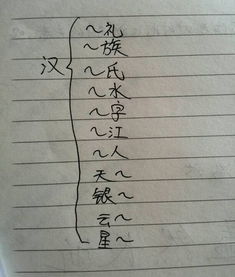 汉
~礼
~族
~氏
~水
~字
~江
~人
天~
银~
云~
星~